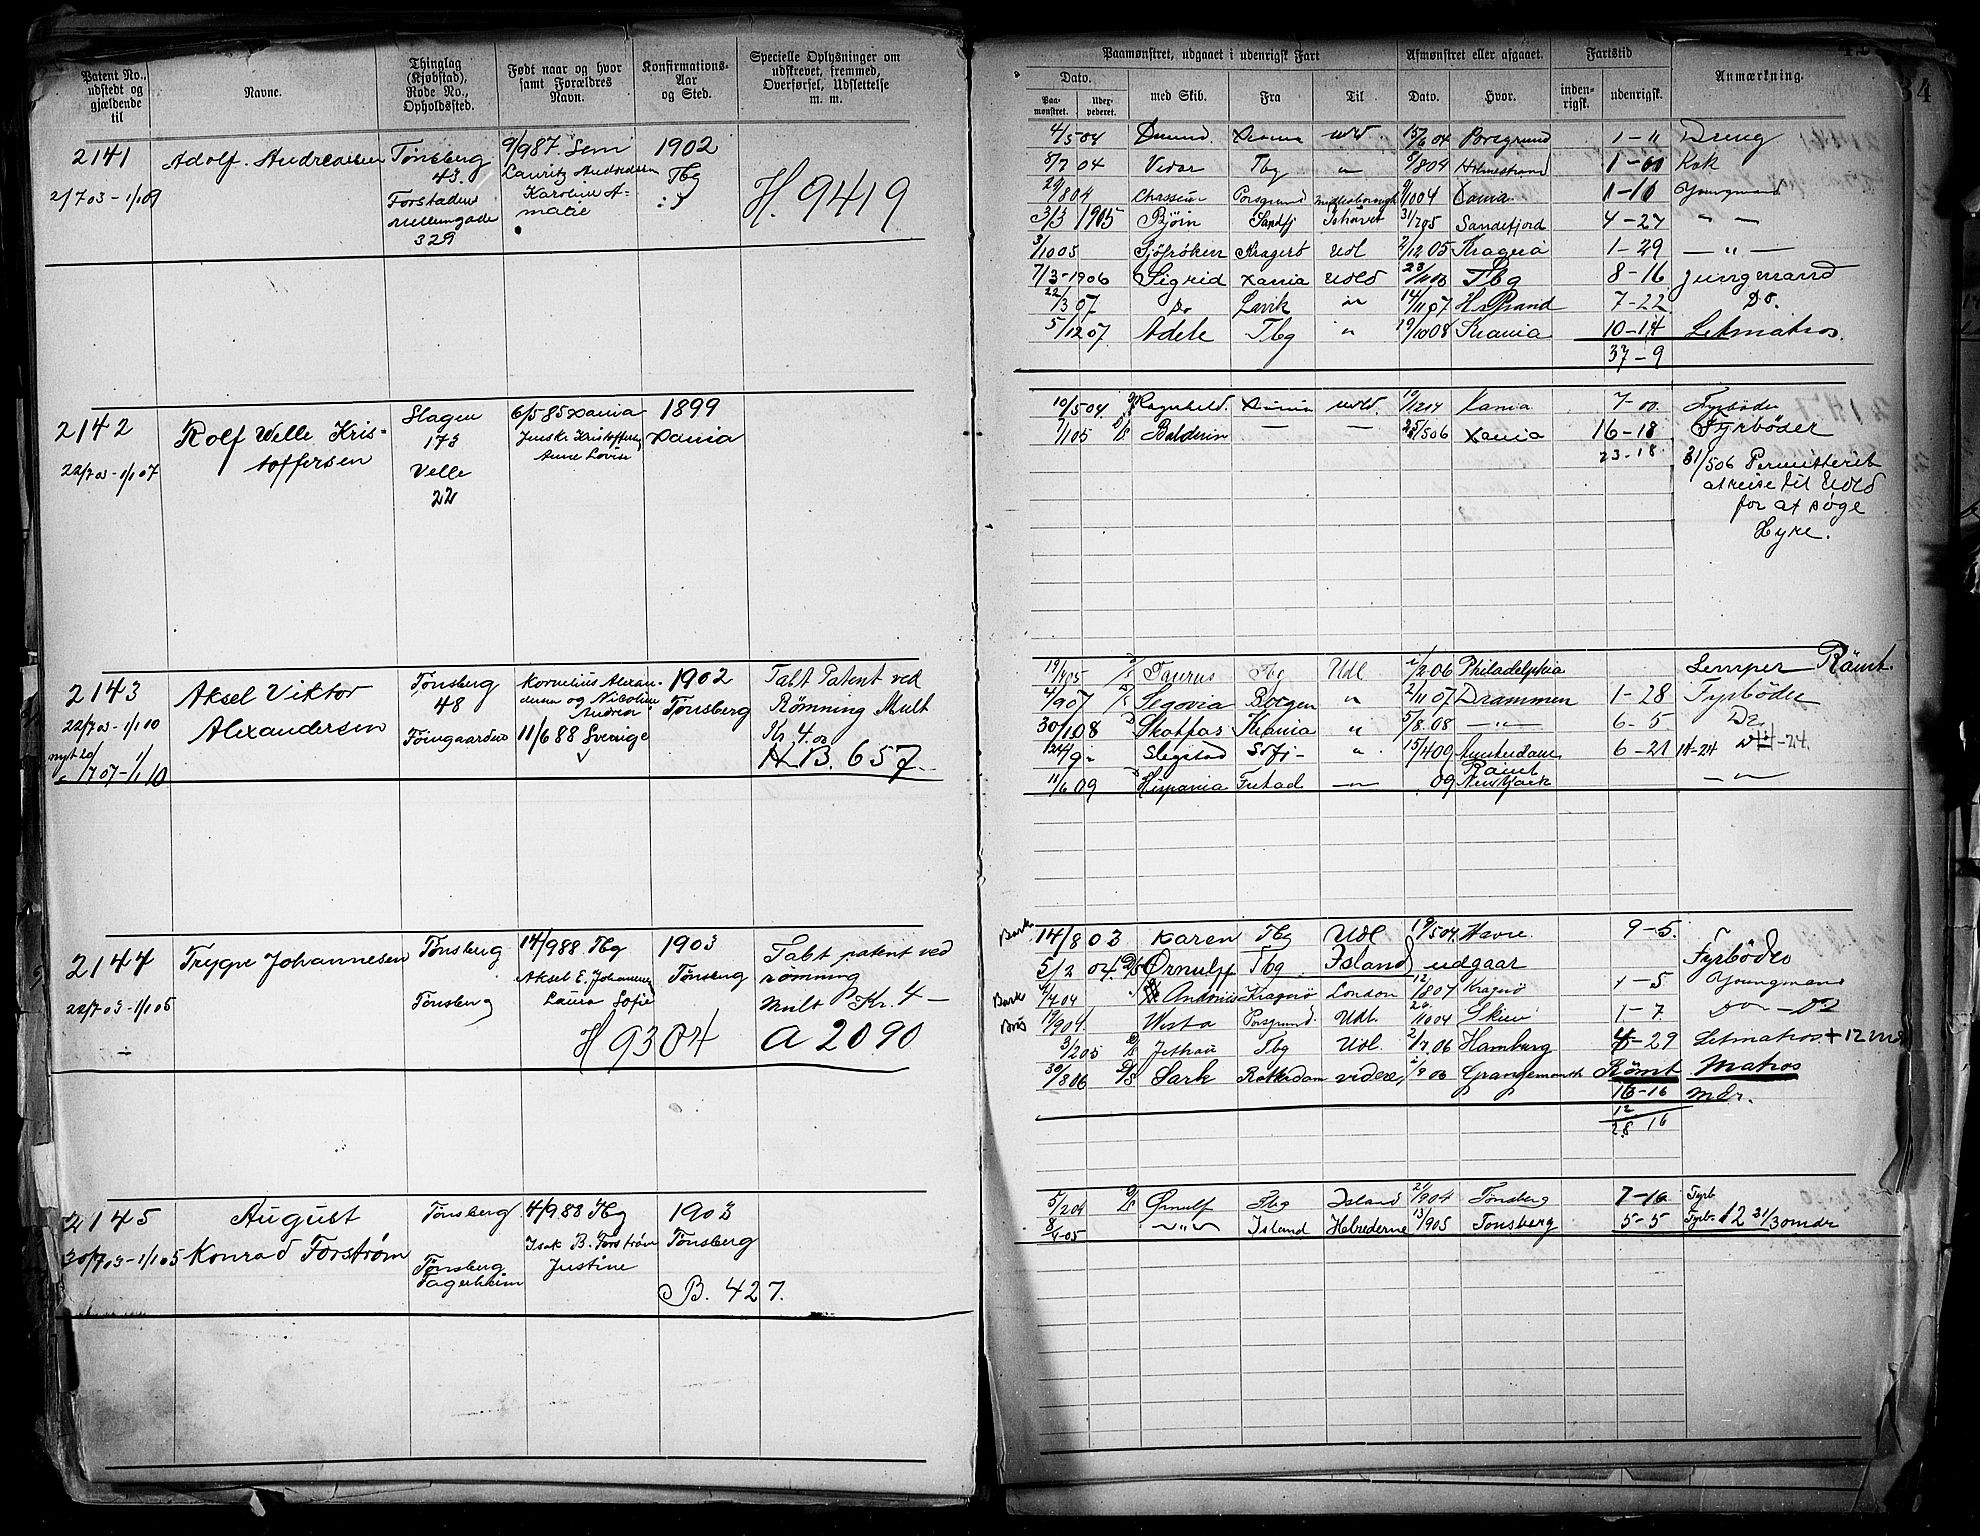 Patent No., udstedt og gjældende til
Navne.
Thinglag (Kjøbstad), Rode No., Opholdssted.
Født naar og hvor samt Forældres Navn.
Konfirmations-Aar og Sted.
Specielle Oplysninger om udskrevet, fremmed, Overførsel, Udslettelse m. m.
2141
2/7 03 - 1/1 09
Adolf Andreassen
Tønsberg
43.
Forstaden
329
9/9 87 Sem
Lauritz Andreassen
Karoline A-
malie
1902
Tbg
H. 9419
2142
22/7 03 - 1/1 07
Rolf Welle Kris-
toffersen
Slagen
173
Velle
22
6/5 85 Xania
Jens Kr. Kristoffersen
Anne Lovise
1899
Xania
2143
22/7 03 - 1/1 10
nyt 20/7 07 - 1/1 10
Aksel Viktor
Alexandersen
Tønsberg
48
Føingaarden
Kornelius Alexan-
dersen og Nicoline
Andrea
11/6 88 Sverige
1902
Tønsberg
Tabt Patent ved
Rømning Mult
Kr 4.00
H B. 657
2144
22/7 03 - 1/1 05
Trygve Johannesen
Tønsberg
Tønsberg
14/9 88 Tbg
Aksel E. Johannesen
Laura Sofie
1903
Tønsberg
Tabt patent ved
rømning
Mult Kr. 4 -
H 9304 A 2090
2145
30/7 03 - 1/1 05
August
Konrad Forstrøm
Tønsberg
Tønsberg
Fagerheim
4/9 88 Tbg
Isak B. Forstrøm
Justine
1903
Tønsberg
B. 427.
34
Paamønstret, udgaaet i udenrigsk Fart
Afmønstret eller afgaaet.
Fartstid
Anmærkning.
Dato.
Paa-mønstret.
med Skib.
Fra
Til
Dato.
Hvor.
inden-rigsk.
udenrigsk.
4/5 04 Xania Udl 15/6 04 Porsgrund 1 - " Dreng
8/7 04 Vidar Tbg " 9/8 04 Holmestrand 1-00 Kok
29/8 04 Porsgrund Middlesborough 9/10 04 Xania 1-10 Youngmand
3/3 1905 Bjørn Sandfj Ishavet 31/7 05 Sandefjord 4-27 " —
3/10 05 Sjøfrøken Kragerø Udl 2/12 05 Kragerø 1-29 — " —
7/3 - 1906 Sigrid Xania Udld 23/11 06 Tbg 8-16 jungmand
22/3 07 Do Larvik " 14/11 07 7-22 Do.
5/12 07 Adele Tbg " 19/10 08 Krania 10-14 Letmatros.
37-9
10/5 04. Ragnhild. Xania Udld. 19/12 04 Xania 7-00. Fyrbøder
7/1 05 D/S Balderin — — 25/5 06 Xania 16-18 Fyrbøder
23-18.
31/5 06 Permitteret
at reise til Udld
for at søge
Hyre.
19/7 05 Taurus Tbg Udl 2/2 06 Philadelphia Lemper Rømt.
4/9 07 Segovia Bergen " 2/11 07 Drammen 1-28 Fyrbøder
30/1 08 Skotfos Krania " 5/8 08 — " — 6-5 Do
Slegstad " 15/4 09 Amsterdam 6-21 14-24
11/6 09 Hispania Fr.stad — " — 09 Rømt New York — " —
Bark 14/8 03 Karen Tbg Udl 19/5 04 Havre. 9-5.
5/2 04. D/S Ørnulf Tbg. Island udgaar Fyrbøder
Bark Kragerø London Kragerø 1-5 Youngmand
19/9 04 Westa Porsgrund. Udl. Skien 1-7 Do - Do
3/2 05 D/S Tbg Udl. 2/7 06 Hamburg 29 Letmatros + 12 md
30/8 06 D/S Sark Rotterdam videre, Grangemouth Rømt Matros
16-16 mdr.
12
28 16
5/2 04 D/S Ørnulf Tbg Island 21/9 04 Tønsberg 7-16 Fyrb
8/4 05 — " — Island Hebriderne 13/9 05 Tønsberg 5-5 Fyrb 12 21/30 mdr